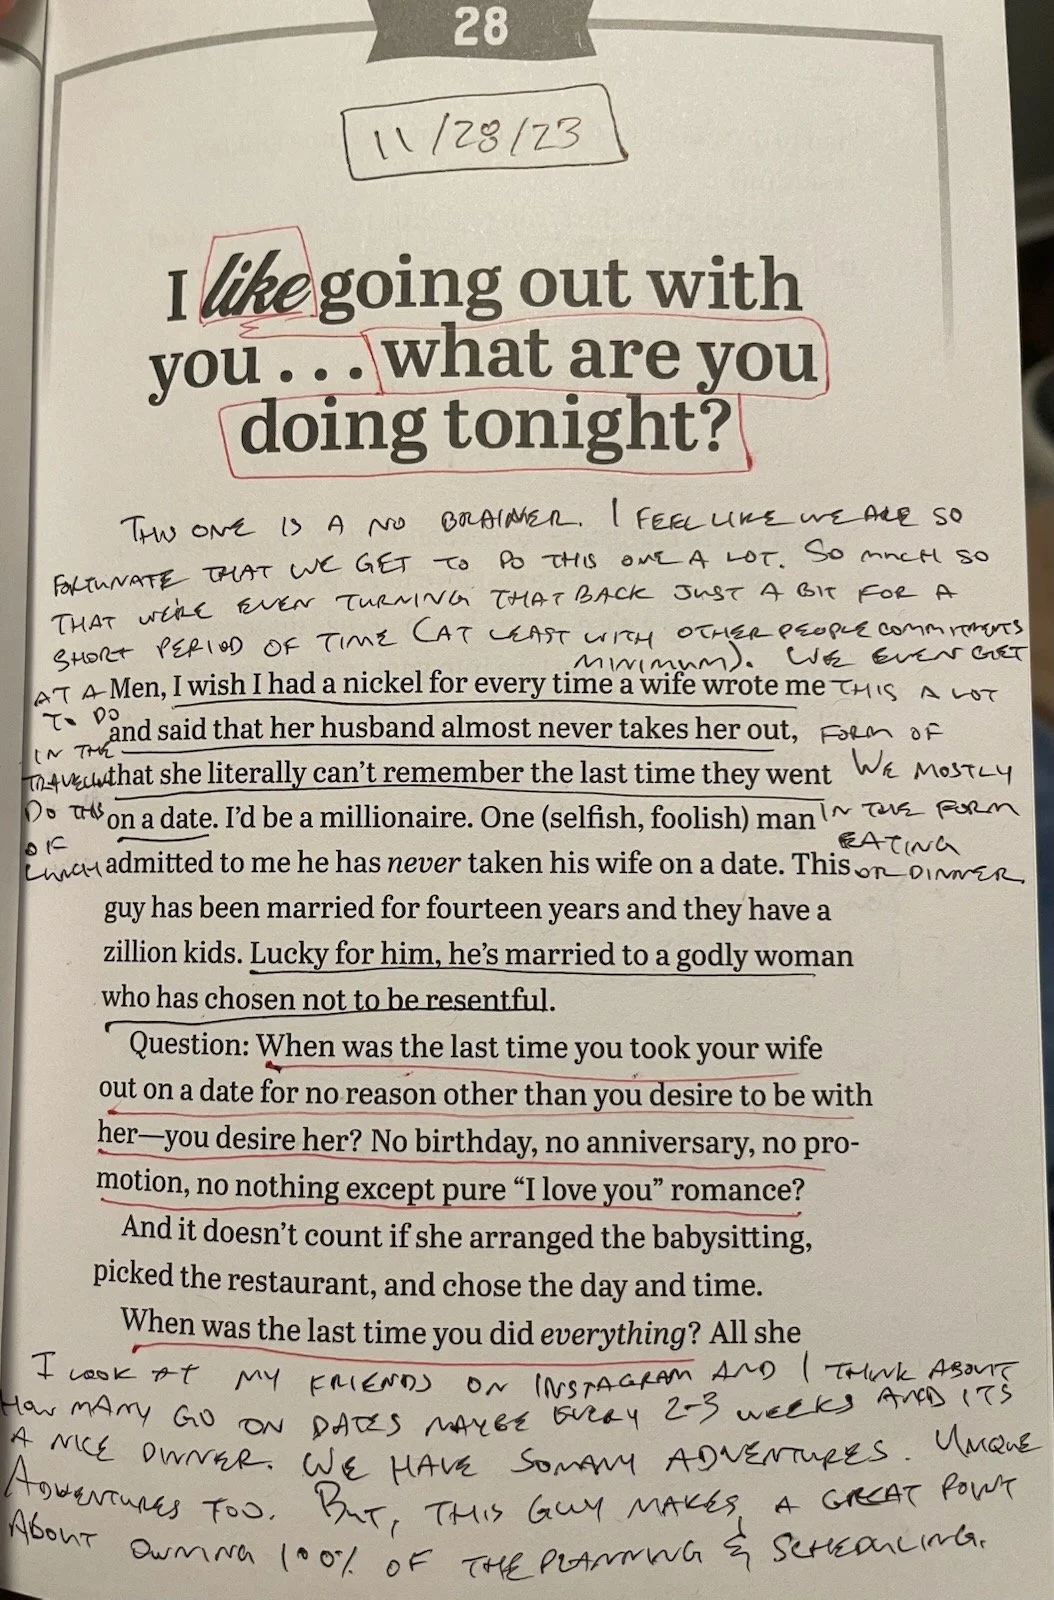 28
11/28/23
I like going out with
you . . . what are you
doing tonight?
THIS ONE IS A NO BRAINER. I FEEL LIKE WE ARE SO
FORTUNATE THAT WE GET TO DO THIS ONE A LOT. SO MUCH SO
THAT WE'RE EVEN TURNING THAT BACK JUST A BIT FOR A
SHORT PERIOD OF TIME (AT LEAST WITH OTHER PEOPLE COMMITMENTS
MINIMUM). WE EVEN GET
AT A Men, I wish I had a nickel for every time a wife wrote me THIS A LOT
TO DO
and said that her husband almost never takes her out, FORM OF
IN THE
that she literally can't remember the last time they went WE MOSTLY
DO THIS on a date. I'd be a millionaire. One (selfish, foolish) man IN THE FORM
OF EATING
LUNCH admitted to me he has never taken his wife on a date. This OR DINNER.
guy has been married for fourteen years and they have a
zillion kids. Lucky for him, he's married to a godly woman
who has chosen not to be resentful.
Question: When was the last time you took your wife
out on a date for no reason other than you desire to be with
her—you desire her? No birthday, no anniversary, no pro-
motion, no nothing except pure “I love you” romance?
And it doesn't count if she arranged the babysitting,
picked the restaurant, and chose the day and time.
When was the last time you did everything? All she
I LOOK AT MY FRIENDS ON INSTAGRAM AND I THINK ABOUT
HOW MANY GO ON DATES MAYBE EVERY 2-3 WEEKS AND ITS
A NICE DINNER. WE HAVE SO MANY ADVENTURES. UNIQUE
ADVENTURES TOO. BUT, THIS GUY MAKES A GREAT POINT
ABOUT OWNING 100% OF THE PLANNING & SCHEDULING.